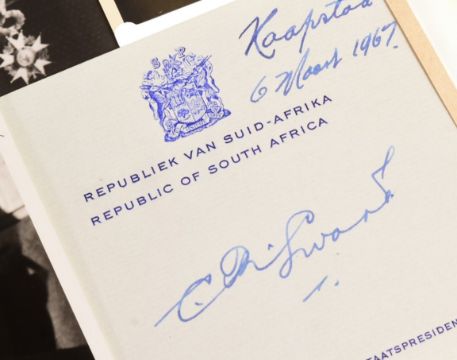 Kaapstad
6 Maart 1967.
REPUBLIEK VAN SUID-AFRIKA
REPUBLIC OF SOUTH AFRICA
C R Swart
TAATSPRESIDEN